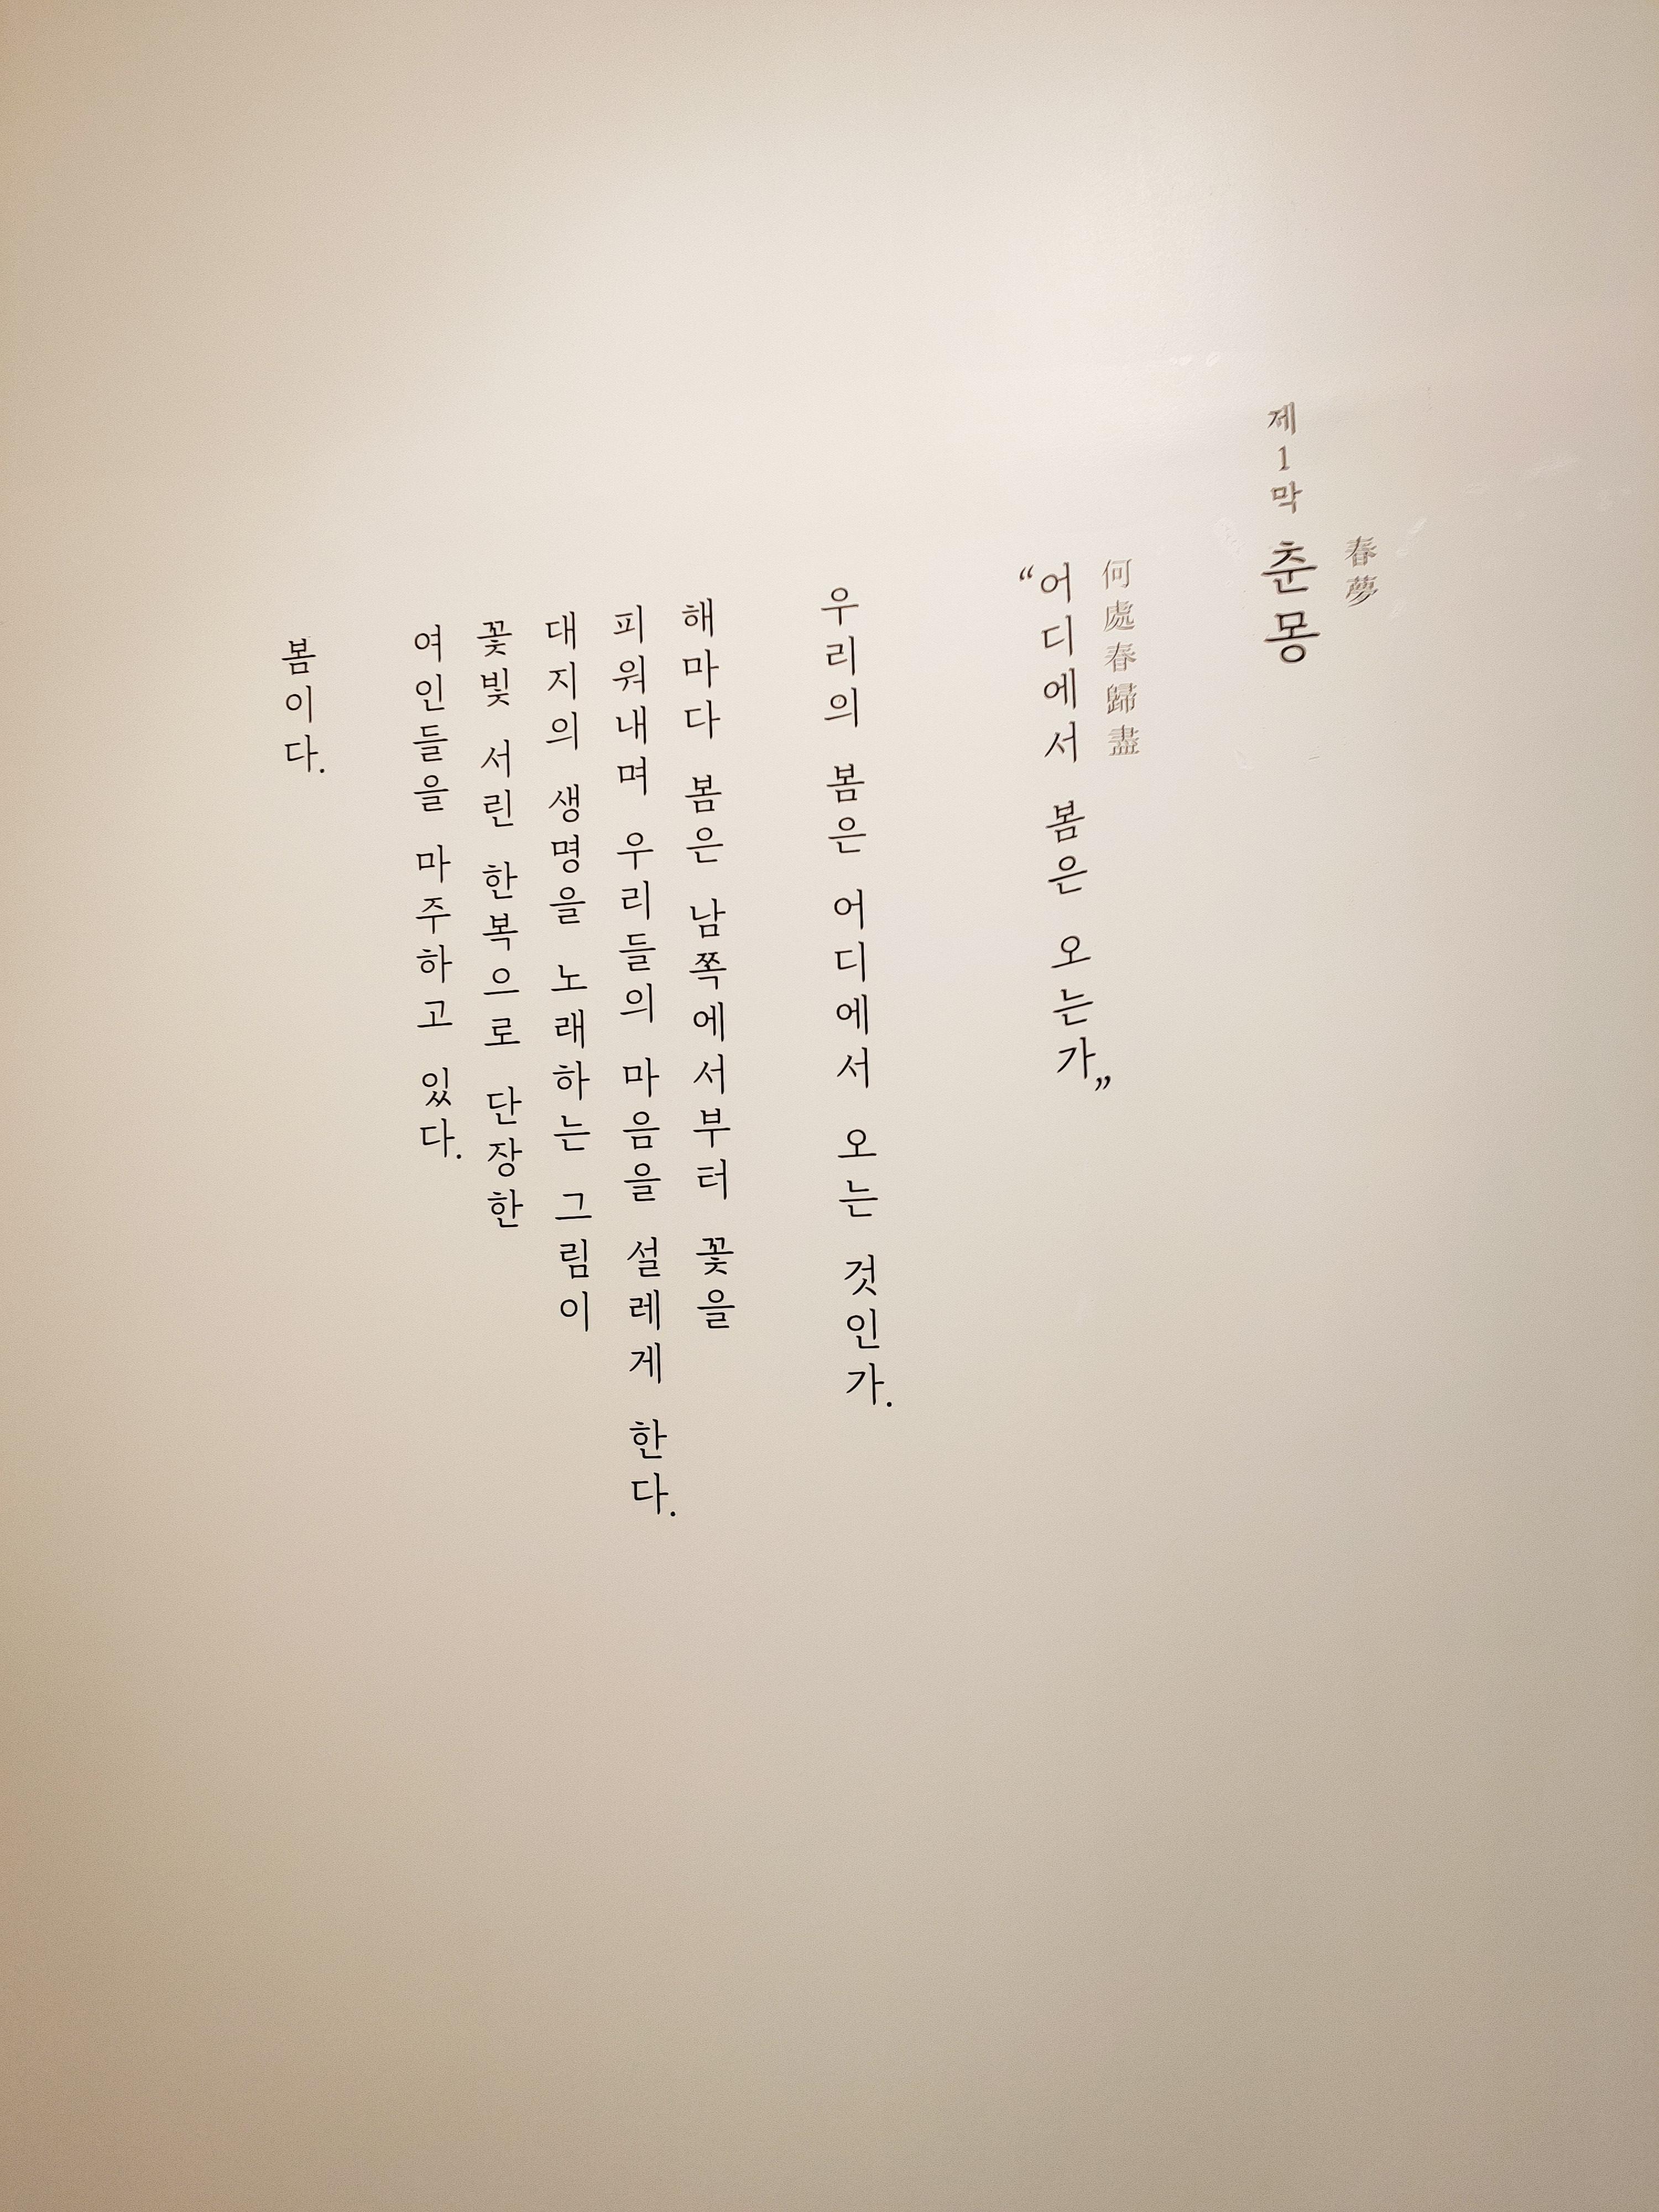 春夢
제1막 춘몽
何處春歸盡
“어디에서 봄은 오는가”
우리의 봄은 어디에서 오는 것인가.
해마다 봄은 남쪽에서부터 꽃을
피워내며 우리들의 마음을 설레게 한다.
대지의 생명을 노래하는 그림이
꽃빛 서린 한복으로 단장한
여인들을 마주하고 있다.
봄이다.